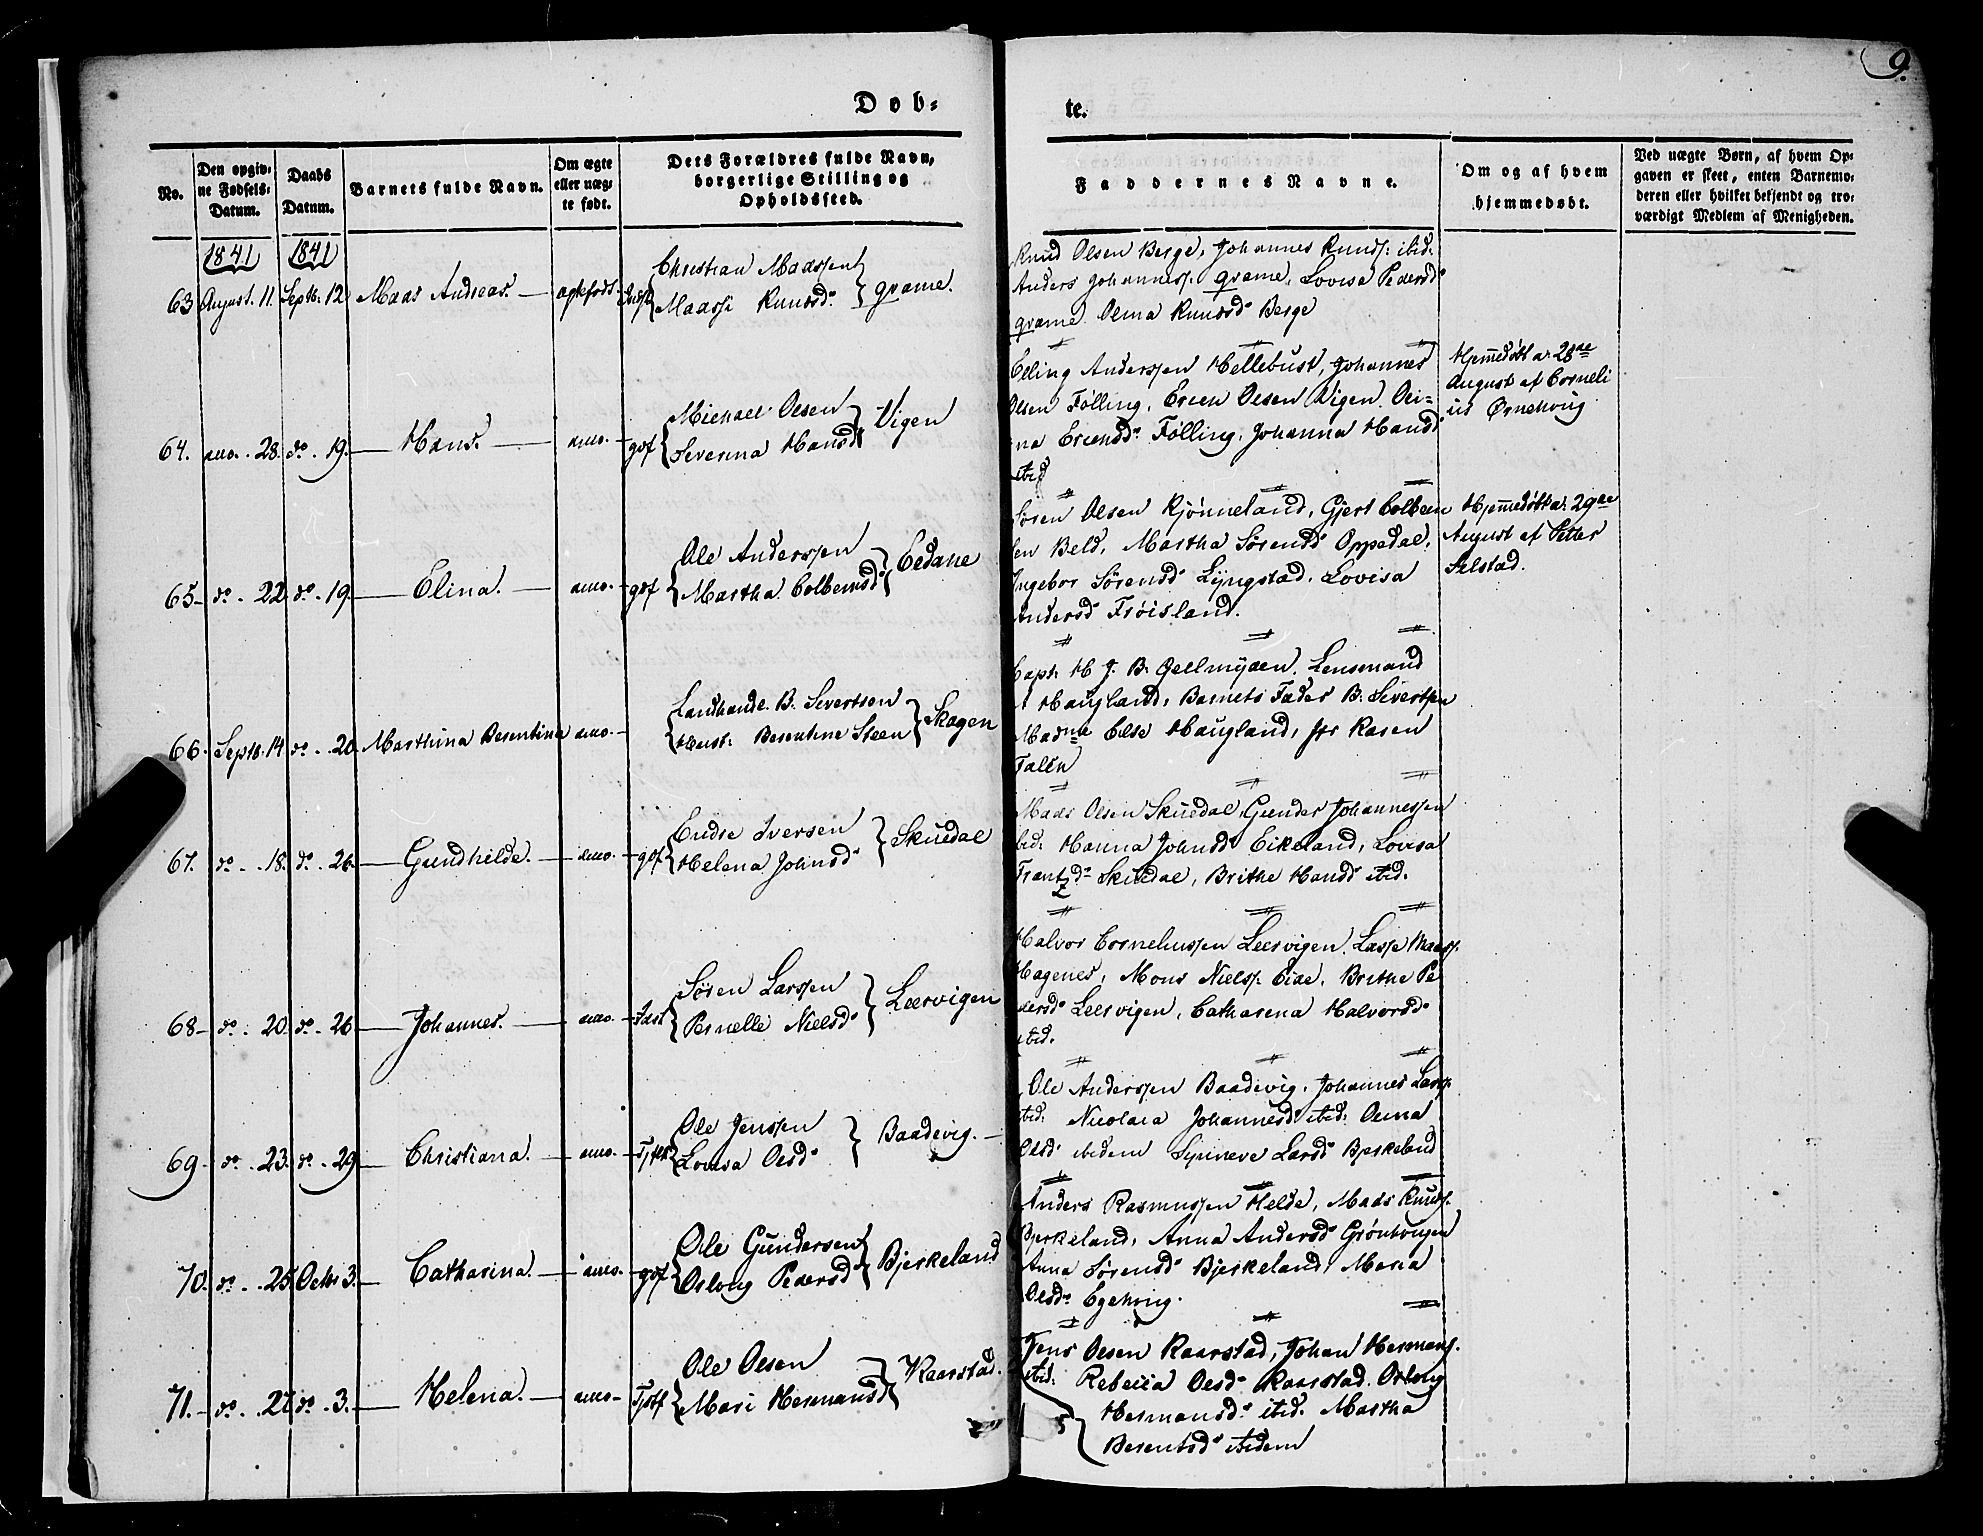 9.
Døb-
te.
No.
Den opgiv-
ne Fødsels-
Datum.
Daabs
Datum.
Barnets fulde Navn.
Om ægte
eller uæg-
te født.
Dets Forældres fulde Navn,
borgerlige Stilling og
Opholdssted.
Faddernes Navne.
Om og af hvem
hjemmedøbt.
Ved uægte Børn, af hvem Op-
gaven er skeet, enten Barnemo-
deren eller hvilket bekjendt og tro-
værdigt Medlem af Menigheden.
1841 1841
63 August. 11. Septb. 12 Maas Andreas. ægtefødt.
Christian Maassen
Maassi Knudsd. Qvame.
Knud Olsen Berge, Johannes Knuds. ibid.
Anders Johanness. Qvame, Lovisa Pedersd
Qvame. Olina Knudsd Berge
64. 28. do. 19. Hans. gdf
Michael Olsen
Severina Hansd Vigen
Elling Anderssen Hellebust, Johannes
Olsen Følling, Erien Olsen Vigen. Oli-
na Eriensd. Følling, Johanna Hansd
ibid
Hjemmedøbt d. 28de
August af Corneli
us Ørnehvig
65 do. 22 do. 19 Elina. gdf
Ole Anderssen
Martha Colbensd Eedane
Søren Olsen Kjønneland, Gjert Colben
sen Beld, Martha Sørensd Oppedal,
Ingebor Sørensd Lyngstad, Lovisa
Andersd Frøisland.
Hjemmedøbt d. 29de
August af Petter
Selstad.
66. Septb. 14. do. 20. Marthina Berentina
Landhandl. B. Severtsen
Berentine Steen Skagen
Capt. H. J. B. Geelmyden. Lensmand
Haugland, Barnets Fader B. Sivertsen
Madme Else Haugland, Jfr Karen
Falen
67. do. 18. do. 26. Gundhilde. gdf
Endre Iversen
Helena Johnsd Skuedal
Mads Olsen Skuedal, Gunder Johannessen
ibid. Hanna Johnsd Eikeland, Lovisa
Frantzd Skuedal, Brithe Hansd ibid.
68 do. 20. do. 26 Johannes. Indst
Søren Larssen
Pernelle Nielsd. Leervigen
Halvor Corneliussen Leervigen, Lasse Mads.
Hagenes, Mons Niels. Eide, Brithe Pe
dersd Leervigen, Catharina Halvorsd
ibid.
69 do. 23. do. 29 Christiana.
Ole Jenssen
Lovisa Olsd. Baadevig.
Ole Anderssen Baadevig, Johannes Lars.
ibid. Nicolaia Johannesd ibid. Olina
Olsd ibidem Synneve Larsd Bjerkeland
70. do. 25 Octb 3. Catharina. gdf
Ole Gundersen
Oslong Pedersd Bjerkeland
Anders Rasmussen Helde, Mads Knuds.
Bjerkeland, Anna Andersd Grønevigen
Anna Sørensd Bjerkeland, Maria
Olsd. Egehvig.
71. do. 27. do. 3. Helena.
Ole Olsen
Mari Hermansd Kaarstad.
Jens Olsen Kaarstad, Johan Hermans.
ibid. Rebecca Olsd Kaarstad. Oslong
Hermansd. ibid. Martha
Berentsd ibidem